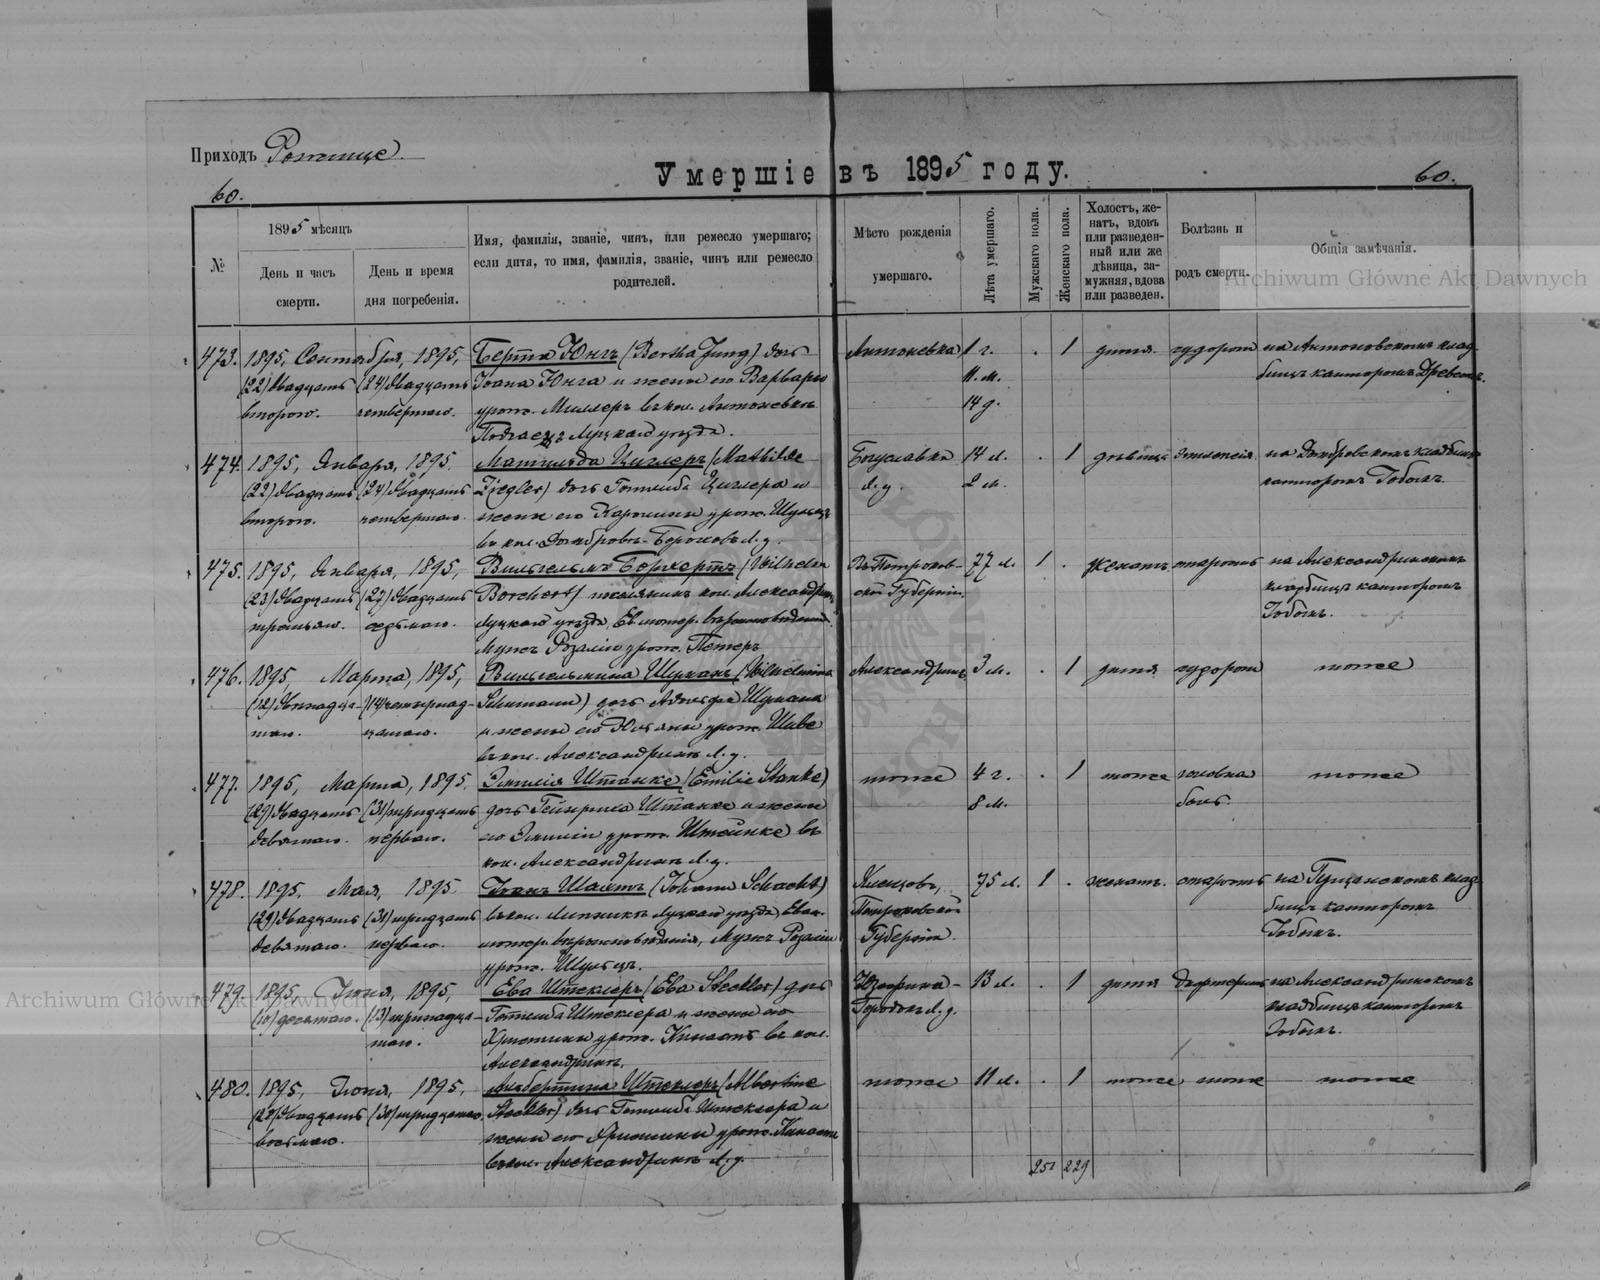 Приходъ Рожище.
Умершіе въ 1895 году.
60.
60.
№
1895 мѣсяцъ
День и часъ смерти.
День и время дня погребенія.
Имя, фамилія, званіе, чинъ, или ремесло умершаго;
если дитя, то имя, фамилія, званіе, чинъ или ремесло
родителей.
Мѣсто рожденія
умершаго.
Лѣта умершаго.
Мужскаго пола.
Женскаго пола.
Холостъ, же-
натъ, вдовъ
или разведен-
ный или же
дѣвица, за-
мужняя, вдова
или разведен.
Болѣзнь и
родъ смерти.
Общія замѣчанія.
Archiwum Główne Akt Dawnych
473. 1895, Сентября, 1895, Берта Юнгъ (Bertha Jung) дочь Антоневка 1 г. . 1 дитя. на Антоновскомъ клад-
(22) двадцать (24) двадцать Іоана Юнга и жены его Варвары 11. м. бищѣ канторомъ
втораго. четвертаго. урож. Миллеръ въ кол. Антоневкѣ 14 д.
Луцкаго уѣзда.
474. 1895, Января, 1895. Матильда Циглеръ (Mathilde Богуславка 14 л. . 1 дѣвица Эпилепсія на Домбровскомъ кладбищѣ
(22) двадцать (24) двадцать Ziegler) дочь Готлиба Циглера и Л. у. 2 м. канторомъ Гобомъ.
втораго. четвертаго. жены его Каролины урож. Шульцъ
въ кол. Домбровѣ-Бороховѣ Л. у.
475. 1895, Января, 1895, Вильгельмъ Борхертъ (Wilhelm Въ Петроков- 77 л. 1 . женатъ старость на Александринскомъ
(23) двадцать (27) двадцать Borchert) кол. Александринъ ской Губерніи кладбищѣ канторомъ
третьяго. седьмаго. Луцкаго уѣзда, Ев. лютер. вѣроисповѣданія. Гобомъ.
Мужъ Розаліи урож. Петеръ
476. 1895, Марта, 1895, Вильгельмина Шуманъ (Wilhelmina Александринъ 3 м. . 1 дитя тоже
(12) двѣнадца- (14) четырнад- Schumann) дочь Адольфа Шумана
таго. цатаго. и жены его Юліяны урож. Шаве
въ кол. Александринѣ Л. у.
477. 1895, Марта, 1895. Эмилія Штанке (Emilie Stanke) тоже 4 г. . 1 тоже головна тоже
(29) двадцать (31) тридцать дочь Гейнриха Штанке и жены 8 м. боль.
девятаго. перваго. его Эмиліи урож. Штейнке въ
кол. Александринѣ Л. у.
478. 1895, Мая, 1895. Іоанъ Шахтъ (Johann Schacht) 75 л. 1 . женатъ. старость на клад-
(29) двадцать (31) тридцать въ кол. Луцкаго уѣзда, Еван. Петроковской бищѣ канторомъ
девятаго. перваго. лютер. вѣроисповѣданія, Мужъ Розаліи Губерніи. Гобомъ.
урож. Шульцъ.
479. 1895, Іюня, 1895, Ева Штеклеръ (Eva Steckler) дочь Юзефина- 13 л. . 1 дитя на Александринскомъ
(10) десятаго. (13) тринадца- Готлиба Штеклера и жены его Городокъ Л. у. кладбищѣ канторомъ
таго. Христины урож. Кинастъ въ кол. Гобомъ.
Александринъ.
480. 1895, Іюня, 1895, Альбертина Штеклеръ (Albertine тоже 11 л. . 1 тоже тоже тоже
(28) двадцать (30) тридцатаго. Steckler) дочь Готлиба Штеклера и
восьмаго. жены его Христины урож. Кинастъ
въ кол. Александринѣ Л. у.
251 229
Archiwum Główne Akt Dawnych